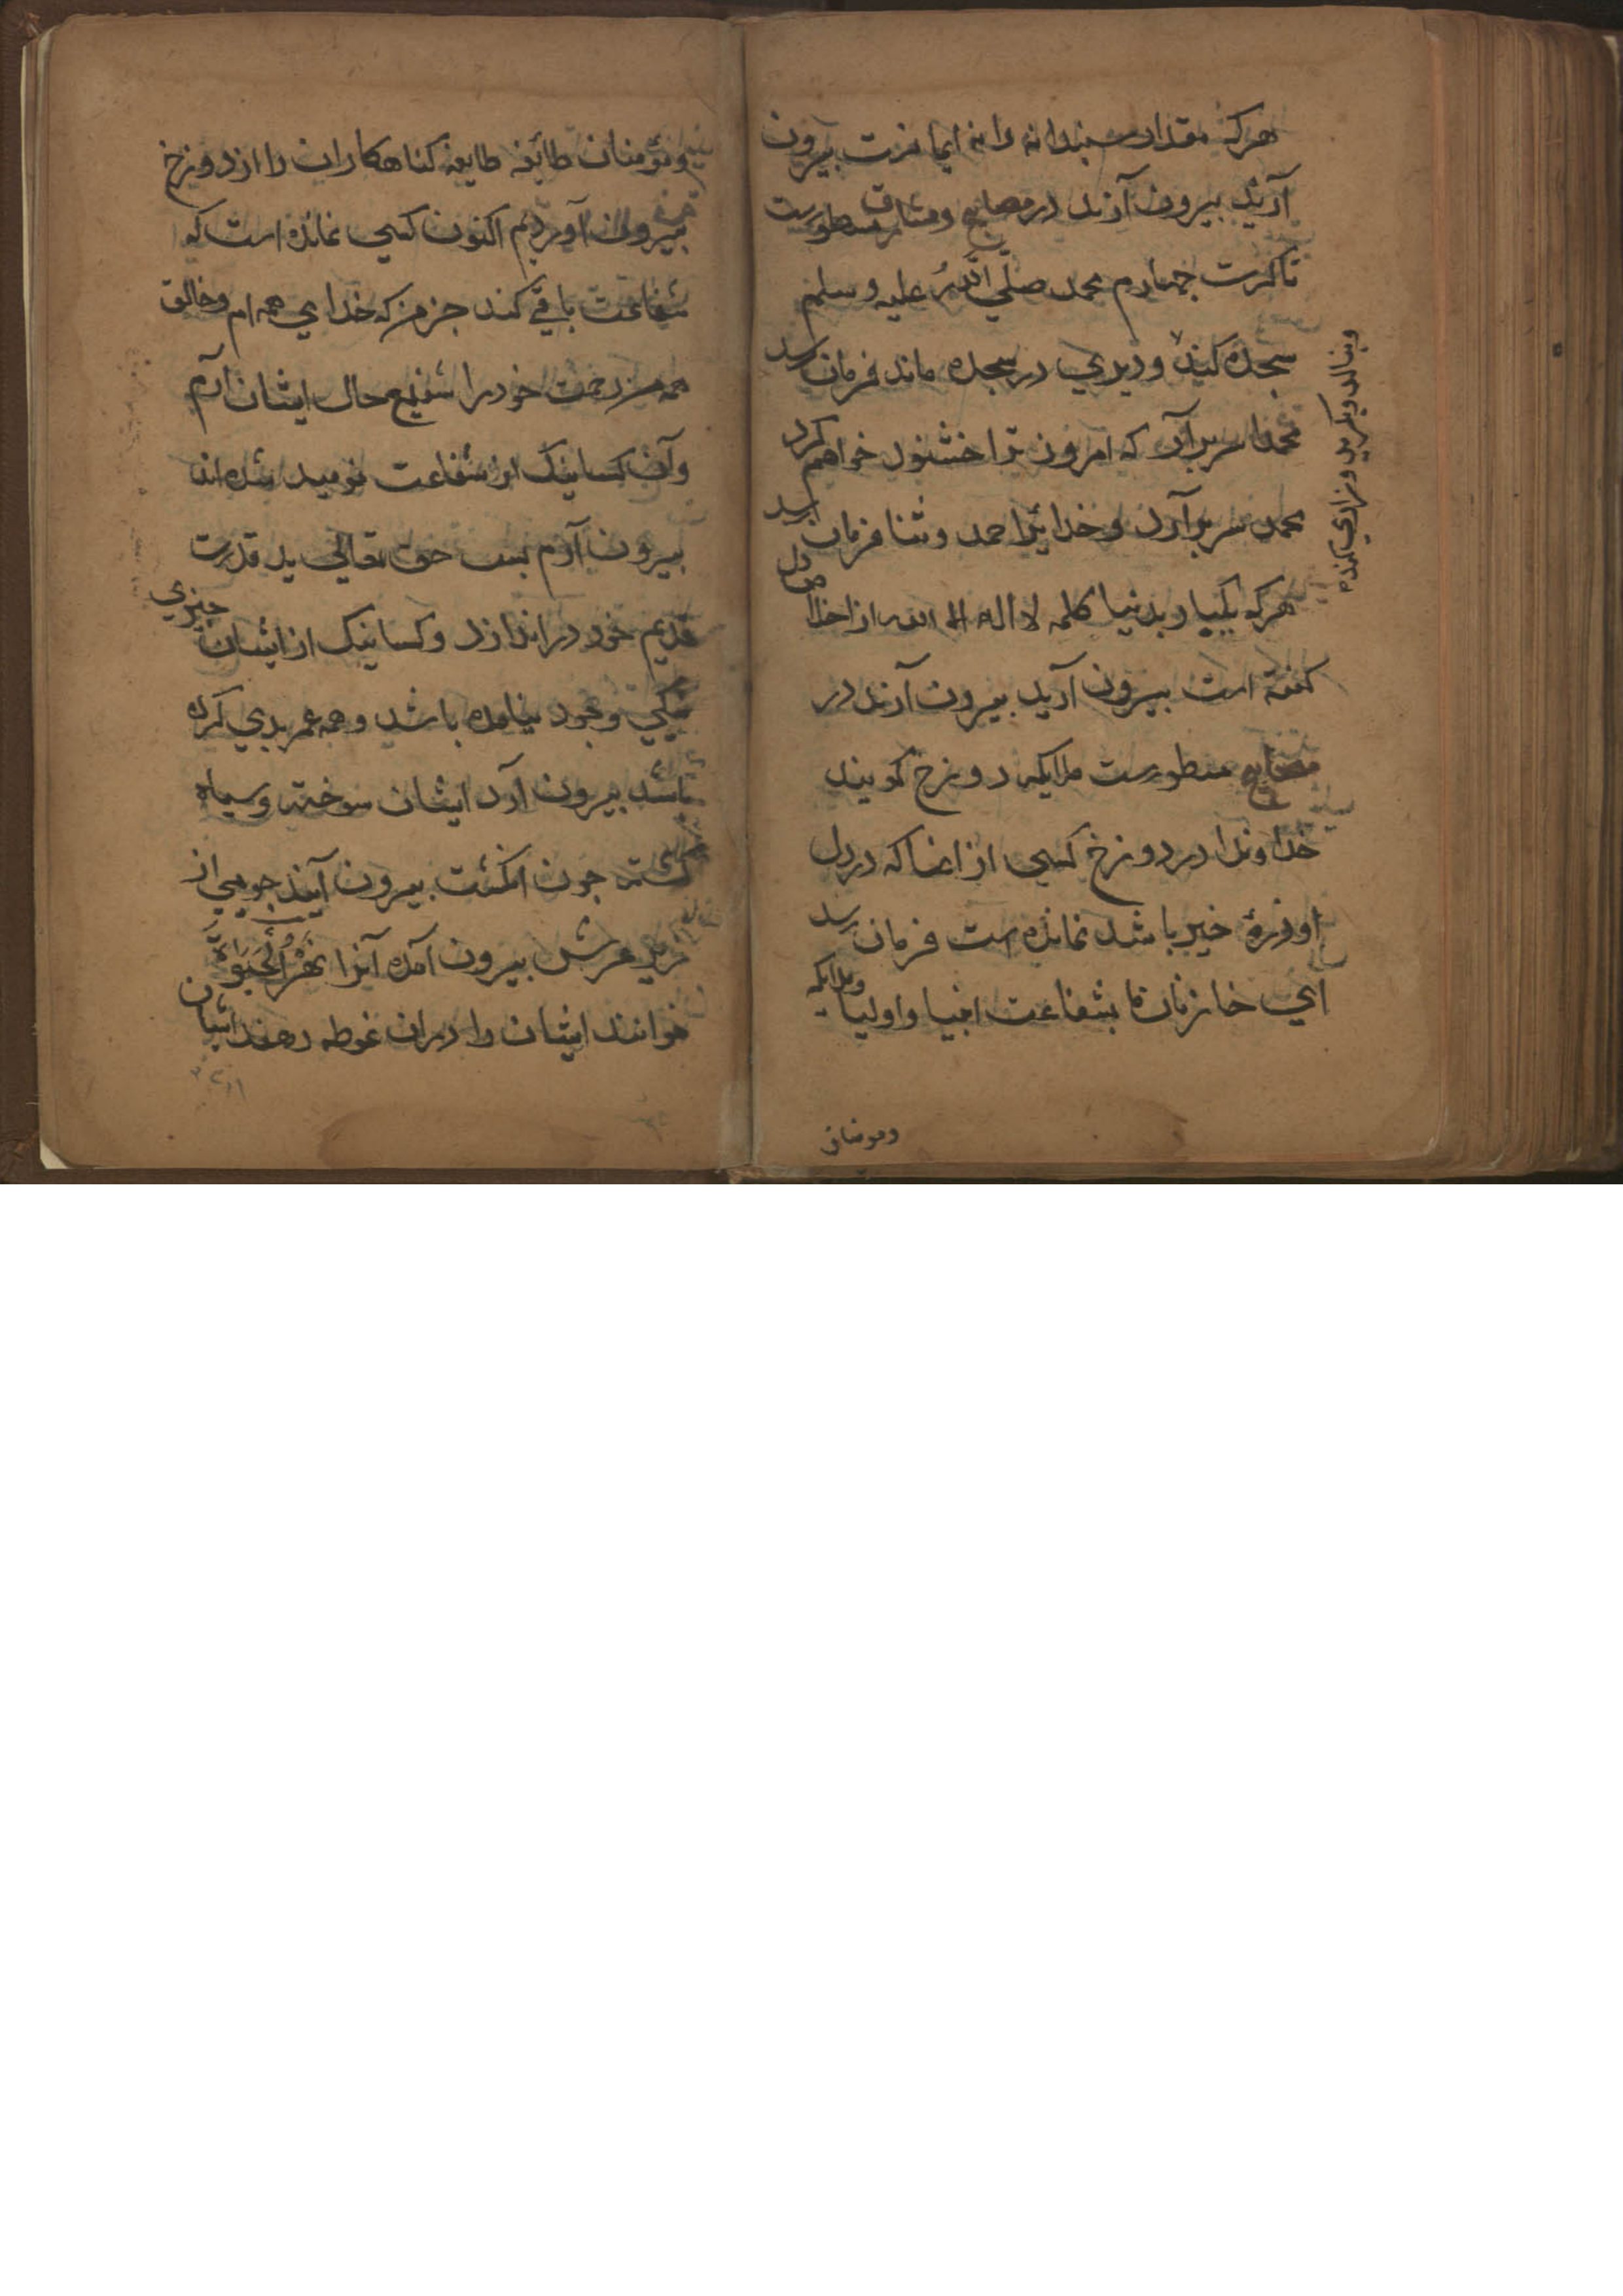 هرکه مقدار سپندانه دانه ایمانست بیرون
آرید بیرون آرند در مصابیح ومشارق مسطورست
تا کرت چهارم محمد صلّی اللّه علیه وسلم
سجده کند ودیری در سجده ماند فرمان رسد
وبنالد وبکرید وزاری کند
محمدا سر برآر که امروز ترا خشنود خواهم کرد
محمد سر برآرد وخدایرا حمد وثنا فرمان رسد
هرکه یکبار بدنیا کلمه لا اله الا الله از اخلاص دل
کفته است بیرون آرید بیرون آرند در
مصابیح مسطورست ملایکه دوزخ کویند
خداوندا در دوزخ کسی از انها که در دل
او ذرهٔ خیر باشد نمانده است فرمان رسد
ای خازنان ما بشفاعت انبیا واولیا وملایکه
ومومنان
ومؤمنان طائفه طایفه کناهکاران را از دوزخ
بیرون آوردیم اکنون کسی نمانده است که
شفاعت باقی کند جز من که خدای همه ام وخالق
همه من رحمت خود را شفیع حال ایشان آرم
وآن کسانیک از شفاعت نومید شده اند
بیرون آرم پس حق تعالی ید قدرت
قدیم خود دراندازد وکسانیک از ایشان چیزی
نیکی وجود نیامده باشد وهمه عمر بدی کرده
باشد بیرون آرد ایشان سوخته وسیاه
کشته چون انکشت بیرون آیند جویی از
زیر عرش بیرون آمده آنرا نهر الحیوة
خوانند ایشان را دران غوطه دهند ایشان